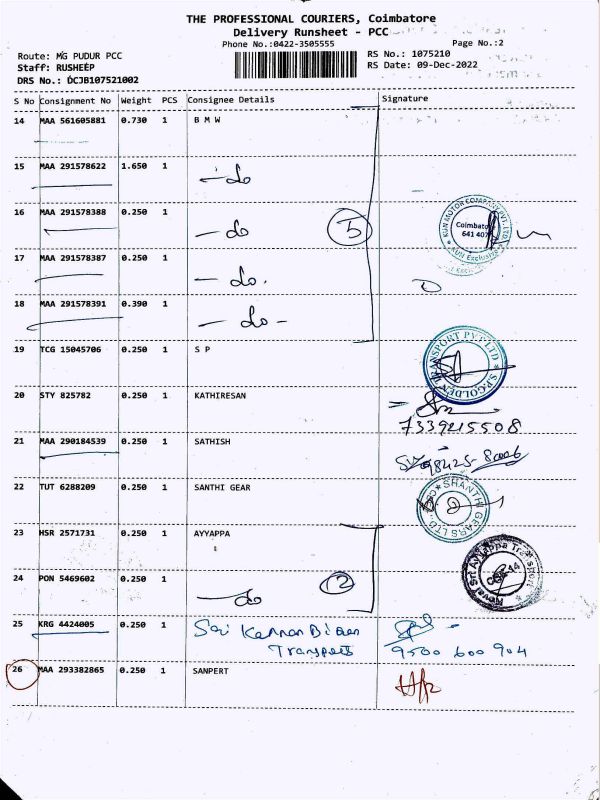 THE PROFESSIONAL COURIERS, Coimbatore
Delivery Runsheet - PCC
Phone No.:0422-3505555
Page No.:2
Route: MG PUDUR PCC
RS No.: 1075210
Staff: RUSHEEP
RS Date: 09-Dec-2022
DRS No.: DCJB107521002
S No Consignment No Weight PCS Consignee Details Signature
14 MAA 561605881 0.730 1 B M W
15 MAA 291578622 1.650 1 - do
16 MAA 291578388 0.250 1 - do
5
KUN MOTOR COMPANY PVT. LTD.
Coimbatore
641 407
KUN Exclusive
17 MAA 291578387 0.250 1 - do.
18 MAA 291578391 0.390 1 - do -
19 TCG 15045706 0.250 1 S P
S.P. GOLDEN TRANSPORT PVT LTD
20 STY 825782 0.250 1 KATHIRESAN
7339215508
21 MAA 290184539 0.250 1 SATHISH
98425-80006
22 TUT 6288209 0.250 1 SANTHI GEAR
SHANTHI GEARS LTD.
23 HSR 2571731 0.250 1 AYYAPPA
24 PON 5469602 0.250 1 - do
2
Sri Ayyappa Transport
CBE-14
25 KRG 4424005 0.250 1 Sri Kannan
Transports
9500 600 904
26 MAA 293382865 0.250 1 SANPERT